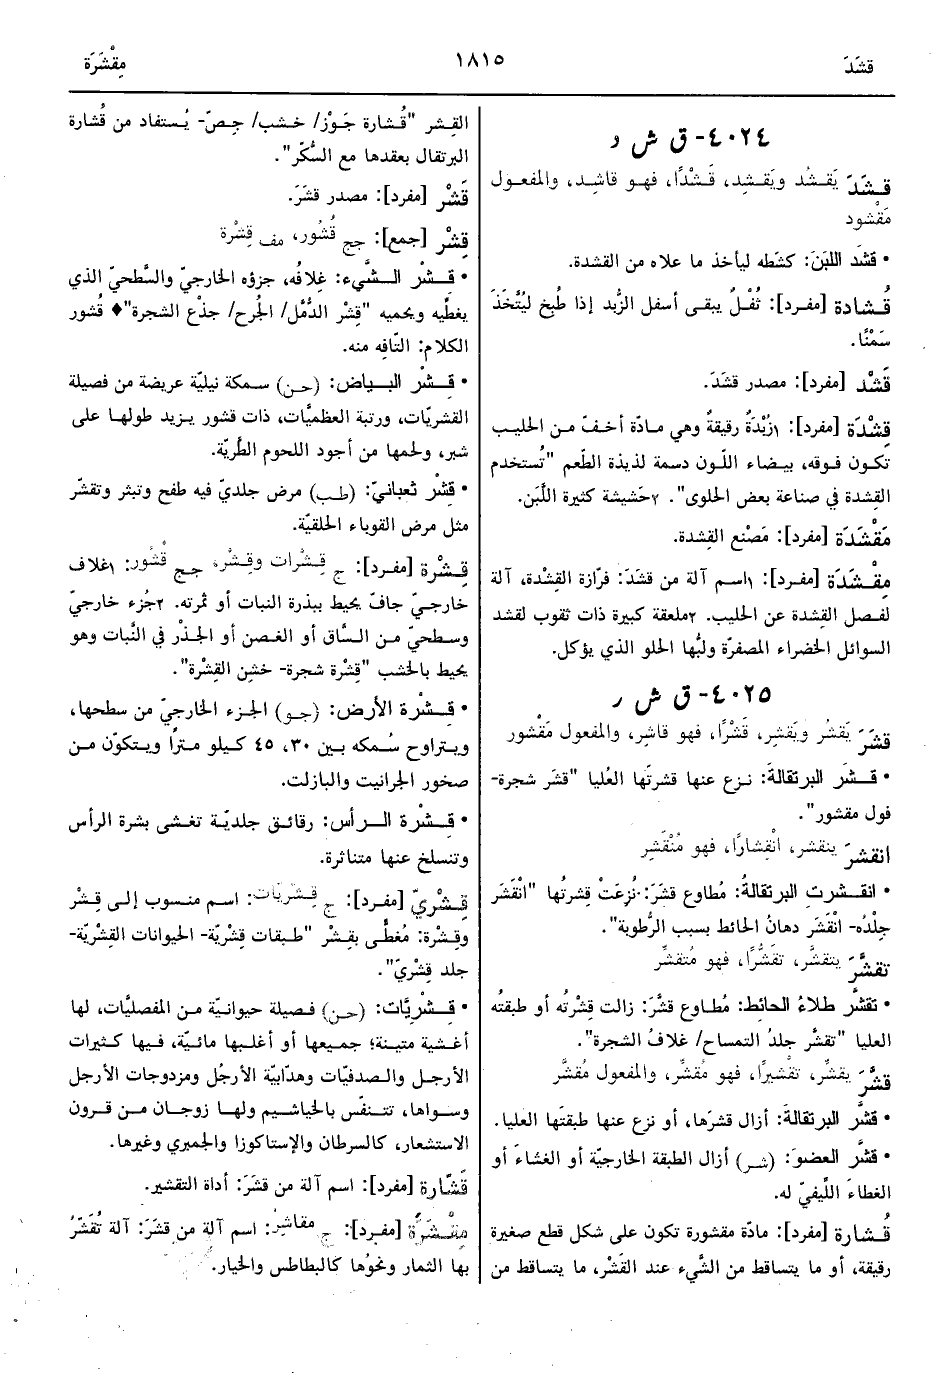 قشَدَ
١٨١٥
مِقْشَرَة
٤٠٢٤- ق ش د
قـشَدَ يَقـشُد ويَقـشِد، قَـشْدًا، فهـو قاشِـد، والمفعـول
مَقْشود
• قشَد اللبَنَ: كشَطه ليأخذ ما علاه من القشدة.
قُـشادة [مفـرد]: ثُفْـلٌ يبقـى أسفل الزُّبد إذا طُبِخ ليُتَّخَذَ
سَمْنًا.
قَشْد [مفرد]: مصدر قشَدَ.
قِشْدَة [مفرد]: ١زُبْدَةٌ رقيقةٌ وهي مـادّة أخـفّ مـن الحليـب
تكـون فـوقه، بيـضاء اللّـون دسمة لذيذة الطّعم "تُستخدم
القِشدة في صناعة بعض الحلوى". ٢حَشيشة كثيرة اللَّبَن.
مَقْشَدَة [مفرد]: مَصْنع القِشدة.
مِقْـشَدَة [مفرد]: ١اسـم آلة من قشَدَ: فرّازة القِشْدة، آلة
لفـصل القِشدة عن الحليب. ٢ملعقة كبيرة ذات ثقوب لقشد
السوائل الخضراء المصفرّة ولبُّها الحلو الذي يؤكل.
٤٠٢٥- ق ش ر
قشَرَ يَقشُر ويَقشِر، قَشْرًا، فهو قاشِر، والمفعول مَقْشور
• قـشَر البرتقالةَ: نـزع عنها قشرتَها العُليا "قشَر شجرة-
فول مقشور".
انقشرَ ينقشر، انْقِشارًا، فهو مُنْقَشِر
• انقـشرت البرتقالةُ: مُطاوع قشَرَ: نُزِعَتْ قِشرتُها "انْقَشَر
جِلْدُه- انْقَشَر دهانُ الحائط بسبب الرُّطوبة".
تقشَّرَ يتقشَّر، تقشُّرًا، فهو مُتقشِّر
• تقشَّر طلاءُ الحائط: مُطـاوع قشَّرَ: زالت قِشْرتُه أو طبقتُه
العليا "تقشَّر جلدُ التمساح/ غلافُ الشجرة".
قشَّرَ يقشِّر، تقْشيرًا، فهو مُقشِّر، والمفعول مُقشَّر
• قشَّر البرتقالةَ: أزال قشرَها، أو نزع عنها طبقتَها العليا.
• قشَّر العضوَ: (شـر) أزال الطبقة الخارجيّة أو الغشاءَ أو
الغطاءَ اللِّيفيّ له.
قُـشارة [مفرد]: مادّة مقشورة تكون على شكل قطع صغيرة
رقيقة، أو ما يتساقط من الشَّيء عند القَشْر، ما يتساقط من
القِـشر "قُـشارة جَـوْز/ خـشب/ جِـصّ- يُـستفاد مـن قُشارة
البرتقال بعقدها مع السُّكّر".
قَشْر [مفرد]: مصدر قشَرَ.
قِشْر [جمع]: جج قُشُور، مف قِشْرة
• قـشْر الـشَّيء: غِلافُه، جزؤه الخارجيّ والسَّطحيّ الذي
يغطِّيه ويحميه "قِشْر الدُّمّل/ الجُرح/ جذْع الشجرة"♦ قُشور
الكلام: التّافِه منه.
• قـشْر البـياض: (حـن) سـمكة نيليّة عريضة من فصيلة
القشريّات، ورتبة العظميَّات، ذات قشور يـزيد طولهـا على
شبر، ولحمها من أجود اللحوم الطَّريّة.
• قشْر ثعبانيّ: (طـب) مرض جلديّ فيه طفح وتبثر وتقشّر
مثل مرض القوباء الحلقيّة.
قِـشْرة [مفـرد]: ج قِـشْرات وقِـشْر، جـج قُشُور: ١غلاف
خارجـيّ جافّ يحيط ببذرة النبات أو ثمرته. ٢جُزء خارجيّ
وسطحيّ مـن الـسَّاق أو الغـصن أو الجـذْر في النَّبات وهو
يحيط بالخشب "قِشْرة شجرة- خشن القِشْرة".
• قـشْرة الأرض: (جـو) الجـزء الخارجيّ من سطحها،
ويتراوح سُمكه بين ٣٠، ٤٥ كـيلو متـرًا ويـتكوّن مـن
صخور الجرانيت والبازلت.
• قـشْرة الـرأس: رقائـق جلديّـة تغـشى بشرة الرأس
وتنسلخ عنها متناثرة.
قِـشْريّ [مفرد]: ج قِـشْرِيَّات: اسـم منسوب إلـى قِـشْر
وقِـشْرة: مُغطًّـى بقِـشْر "طـبقات قِشْريّة- الحيوانات القِشْريّة-
جلد قِشْريّ".
• قـشْرِيَّات: (حـن) فصيلة حيوانيّة مـن المفصليَّات، لها
أغـشية متينـة؛ جمـيعها أو أغلـبها مائـيّة، فـيها كـثيرات
الأرجـل والـصدفيّات وهدّابيّة الأرجُل ومزدوجات الأرجل
وسـواها، تتـنفّس بالخياشـيم ولهـا زوجـان مـن قـرون
الاستشعار، كالسرطان والإستاكوزا والجمبري وغيرها.
قَشّارة [مفرد]: اسم آلة من قشَرَ: أداة التقشير.
مِقْـشَرَة [مفـرد]: ج مقاشِر: اسـم آلة من قشَرَ: آلة تُقَشّرُ
بها الثمار ونحوُها كالبطاطس والخيار.